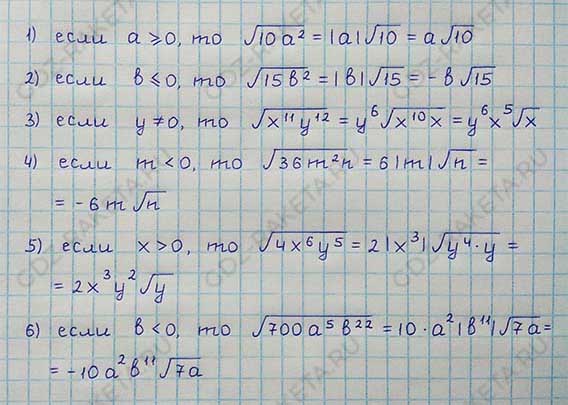 1) если a ⩾ 0, то √10a² = |a|√10 = a√10
2) если b ⩽ 0, то √15b² = |b|√15 = -b√15
3) если y ≠ 0, то √x¹¹y¹² = y⁶√x¹⁰x = y⁶x⁵√x
4) если m < 0, то √36m²n = 6|m|√n =
= -6m√n
5) если x > 0, то √4x⁶y⁵ = 2|x³|√y⁴·y =
= 2x³y²√y
6) если b < 0, то √700a⁵b²² = 10·a²|b¹¹|√7a =
= -10a²b¹¹√7a
GDZ-RAKETA.RU